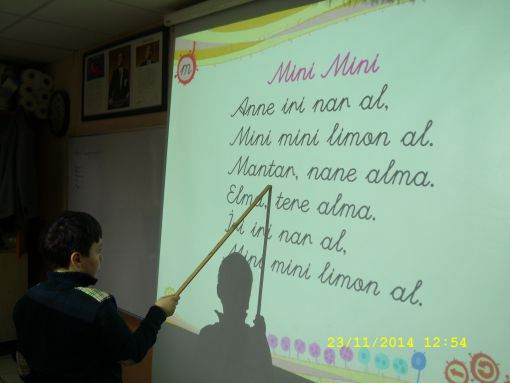 m
Mini Mini
Anne iri nar al,
Mini mini limon al.
Mantar, nane alma.
Elma, tere alma.
İri iri nar al,
Mini mini limon al.
23/11/2014 12:54